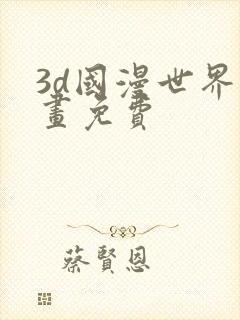 3d國漫世界
畫免費
蔡賢恩